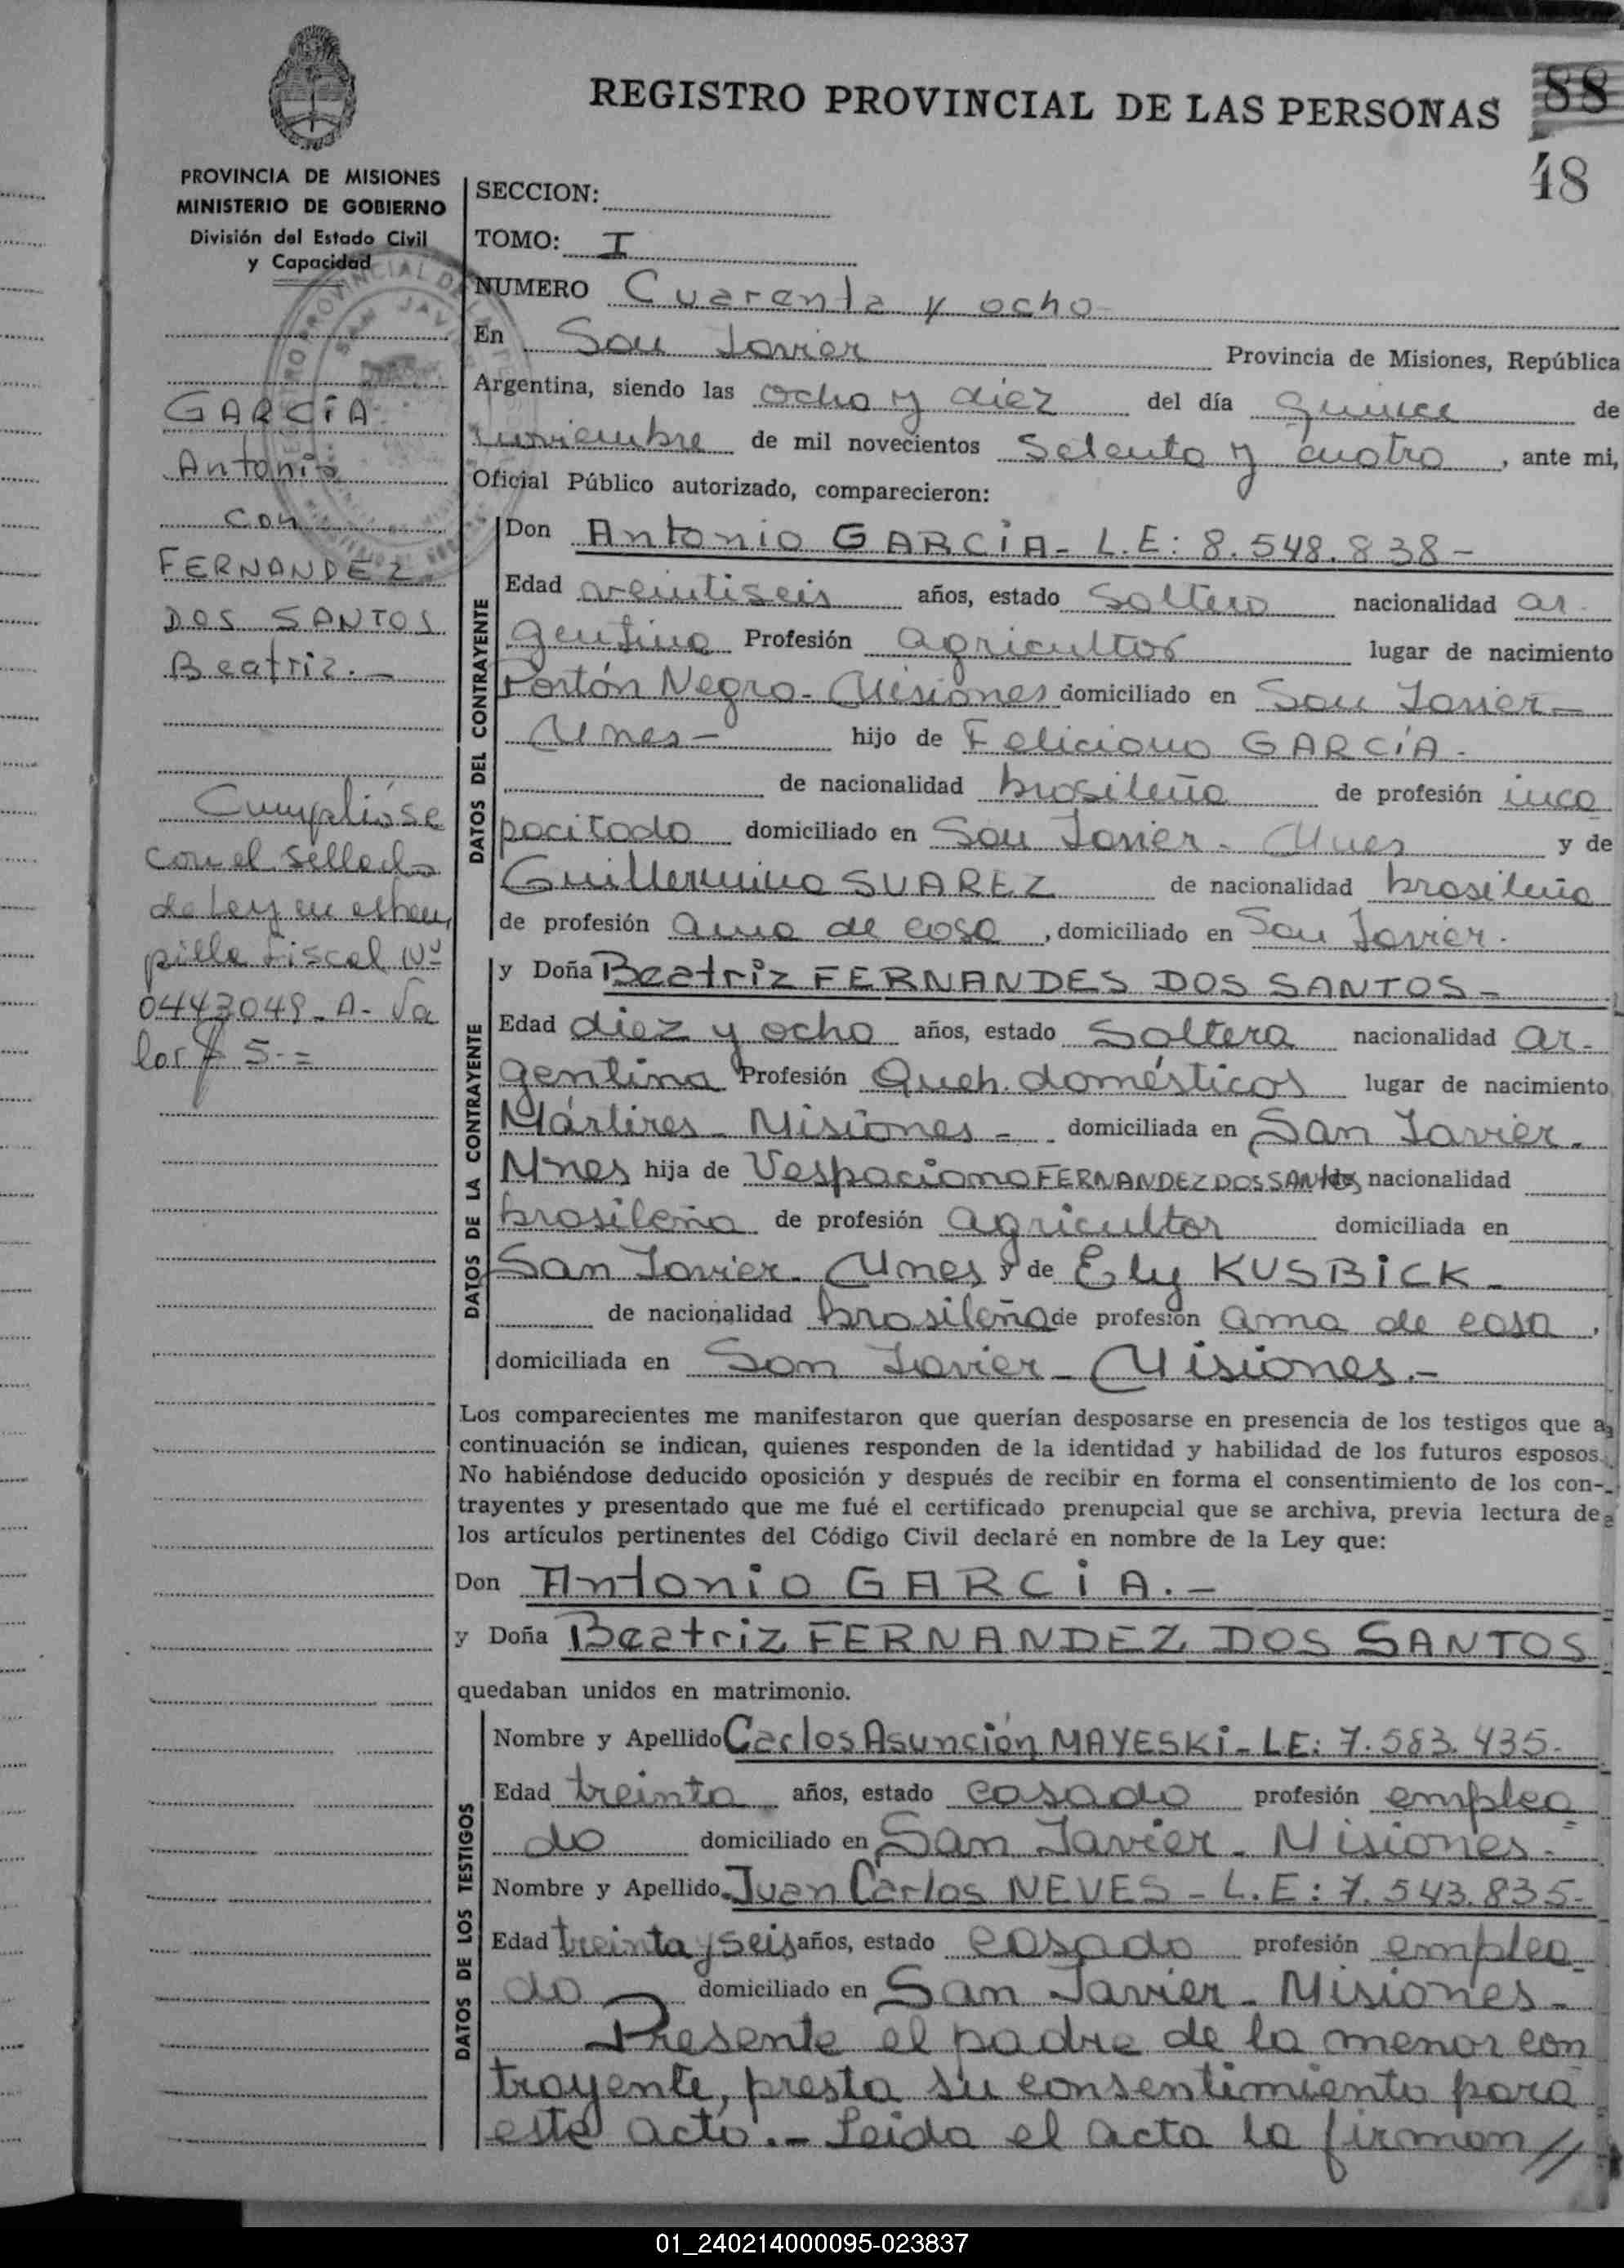 REGISTRO PROVINCIAL DE LAS PERSONAS
88
48
PROVINCIA DE MISIONES
MINISTERIO DE GOBIERNO
División del Estado Civil
y Capacidad
GARCÍA
Antonio
con
FERNANDEZ
DOS SANTOS
Beatriz.-
Cumplióse
con el sellado
de Ley en estam
pilla fiscal Nº
0443049-A- Va
lor $ 5.=
SECCION:
TOMO: I
NUMERO Cuarenta y ocho
En San Javier Provincia de Misiones, República
Argentina, siendo las ocho y diez del día quince de
noviembre de mil novecientos setenta y cuatro, ante mi,
Oficial Público autorizado, comparecieron:
DATOS DEL CONTRAYENTE
Don Antonio GARCÍA- L.E: 8.548.838-
Edad veintiseis años, estado soltero nacionalidad ar-
gentina Profesión agricultor lugar de nacimiento
Portón Negro- Misiones domiciliado en San Javier-
Mnes- hijo de Feliciano GARCÍA-
de nacionalidad brasileña de profesión inca
pacitado domiciliado en San Javier- Mnes y de
Guillermina SUAREZ de nacionalidad brasileña
de profesión ama de casa, domiciliado en San Javier-
DATOS DE LA CONTRAYENTE
y Doña Beatriz FERNANDES DOS SANTOS-
Edad diez y ocho años, estado Soltera nacionalidad ar-
gentina Profesión Queh. domésticos lugar de nacimiento
Mártires- Misiones- domiciliada en San Javier-
Mnes hija de Vespaciano FERNANDEZ DOS SANTOS nacionalidad
brasileña de profesión agricultor domiciliada en
San Javier- Mnes y de Ely KUSBICK-
de nacionalidad brasileña de profesión ama de casa,
domiciliada en San Javier- Misiones.-
Los comparecientes me manifestaron que querían desposarse en presencia de los testigos que a
continuación se indican, quienes responden de la identidad y habilidad de los futuros esposos.
No habiéndose deducido oposición y después de recibir en forma el consentimiento de los con-
trayentes y presentado que me fué el certificado prenupcial que se archiva, previa lectura de
los artículos pertinentes del Código Civil declaré en nombre de la Ley que:
Don Antonio GARCÍA.-
y Doña Beatriz FERNANDEZ DOS SANTOS
quedaban unidos en matrimonio.
DATOS DE LOS TESTIGOS
Nombre y Apellido Carlos Asunción MAYESKI- LE: 7.583.435-
Edad treinta años, estado casado profesión emplea
do domiciliado en San Javier- Misiones-
Nombre y Apellido Juan Carlos NEVES- L.E: 7.543.835-
Edad treinta y seis años, estado casado profesión emplea
do domiciliado en San Javier- Misiones-
Presente el padre de la menor con
trayente, presta su consentimiento para
este acto.- Leida el acta la firman//
01_240214000095-023837